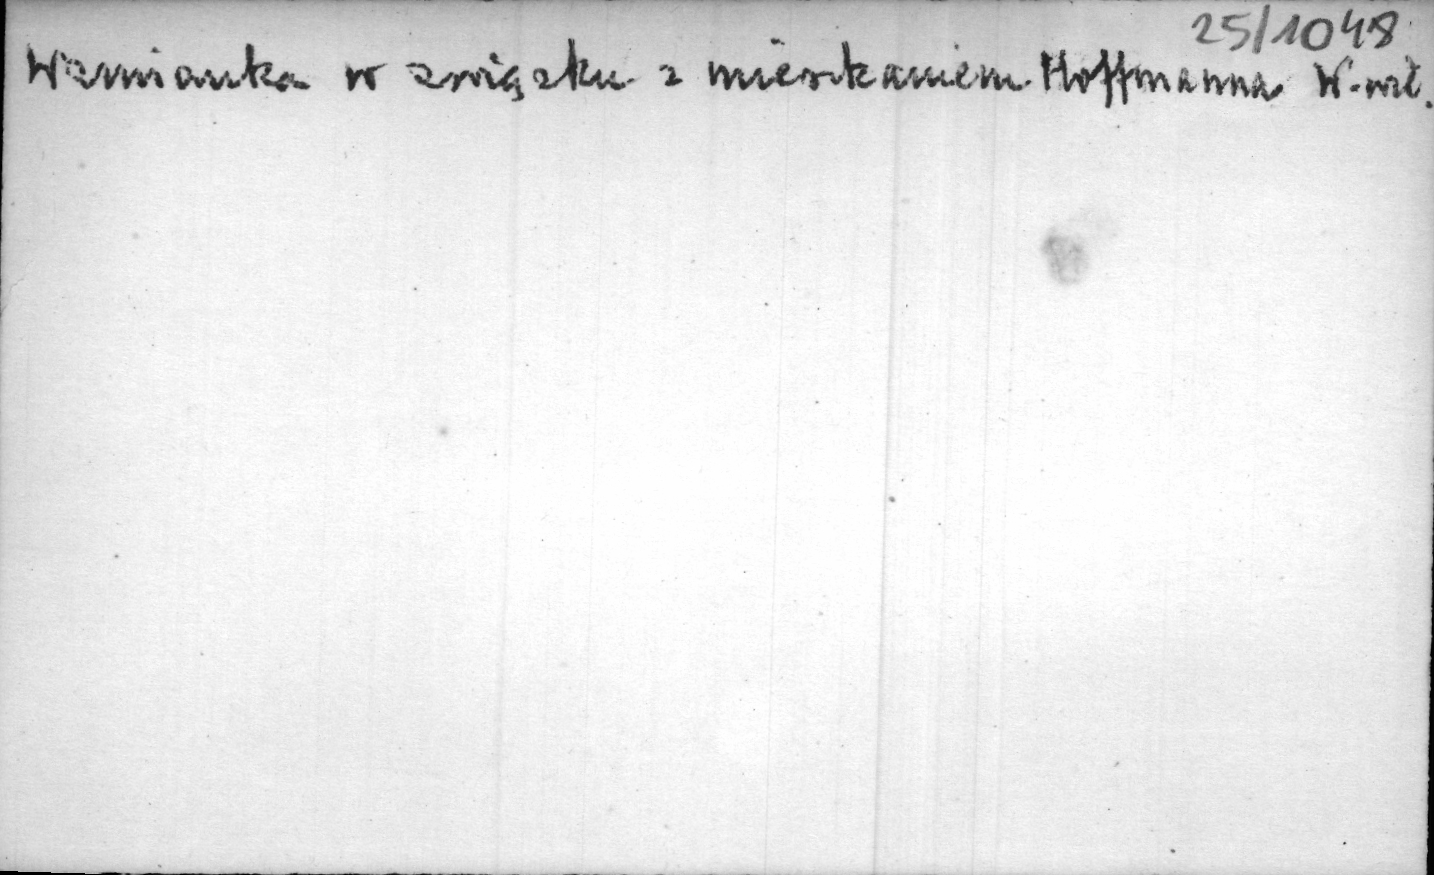 25/1048
Wzmianka w związku z mieszkaniem Hoffmanna